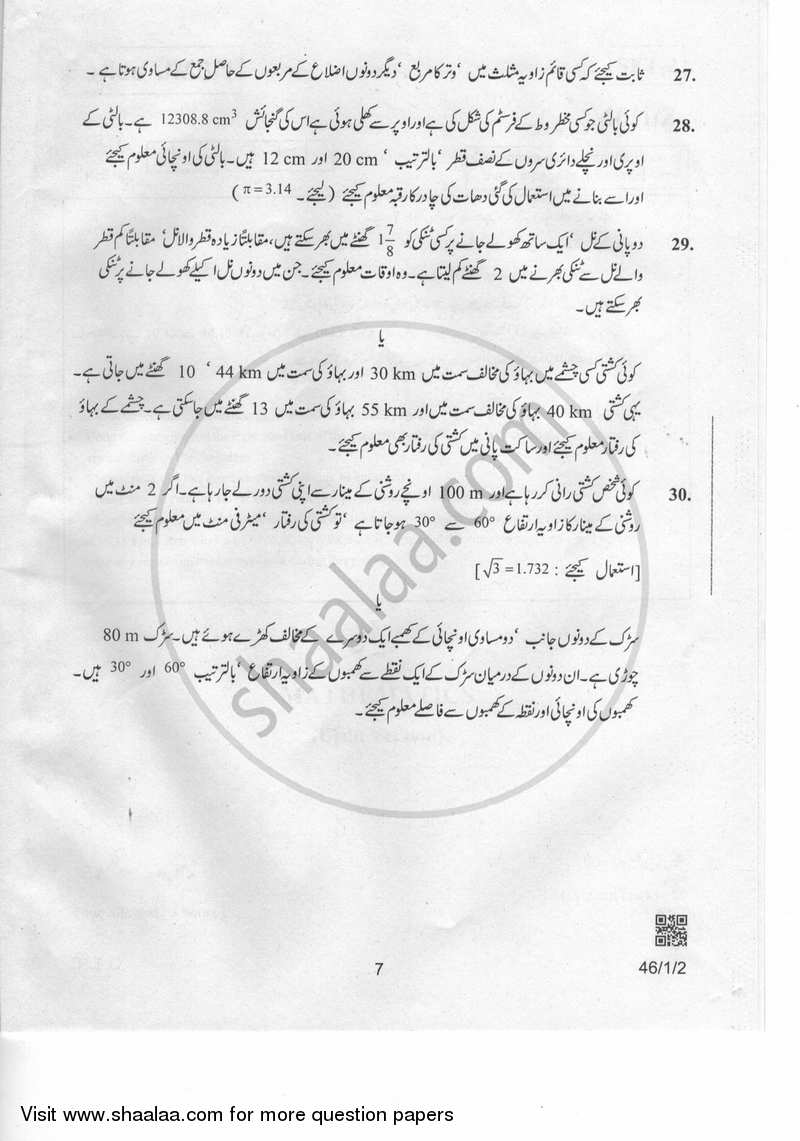 27. ثابت کیجئے کہ کسی قائم زاویہ مثلث میں ‘وتر کا مربع ‘دیگر دونوں اضلاع کے مربعوں کے حاصل جمع کے مساوی ہوتا ہے ۔
28. کوئی بالٹی جو کسی مخروط کے فرسٹم کی شکل کی ہے اور اوپر سے کھلی ہوئی ہے اس کی گنجائش 12308.8 cm³ ہے۔ بالٹی کے
اوپری اور نچلے دائری سروں کے نصف قطر ‘بالترتیب ‘ 20 cm اور 12 cm ہیں۔ بالٹی کی اونچائی معلوم کیجئے
اور اسے بنانے میں استعمال کی گئی دھات کی چادر کا رقبہ معلوم کیجئے (لیجئے ۔ π = 3.14)
29. دو پانی کے نل ‘ایک ساتھ کھولے جانے پر کسی ٹنکی کو 1 7/8 گھنٹے میں بھر سکتے ہیں، مقابلتاً زیادہ قطر والا نل‘ مقابلتاً کم قطر
والے نل سے ٹنکی بھرنے میں 2 گھنٹے کم لیتا ہے۔ وہ اوقات معلوم کیجئے۔ جن میں دونوں نل اکیلے کھولے جانے پر ٹنکی
بھر سکتے ہیں۔
یا
کوئی کشتی کسی چشمے میں بہاؤ کی مخالف سمت میں 30 km اور بہاؤ کی سمت میں 44 km ‘ 10 گھنٹے میں جاتی ہے۔
یہی کشتی 40 km بہاؤ کی مخالف سمت میں اور 55 km بہاؤ کی سمت میں 13 گھنٹے میں جا سکتی ہے۔ چشمے کے بہاؤ
کی رفتار معلوم کیجئے اور ساکت پانی میں کشتی کی رفتار بھی معلوم کیجئے ۔
30. کوئی شخص کشتی رانی کر رہا ہے اور 100 m اونچے روشنی کے مینار سے اپنی کشتی دور لے جا رہا ہے۔ اگر 2 منٹ میں
روشنی کے مینار کا زاویہ ارتفاع 60° سے 30° ہو جاتا ہے ‘تو کشتی کی رفتار ‘میٹر فی منٹ میں معلوم کیجئے
[استعمال کیجئے : √3 = 1.732]
یا
سڑک کے دونوں جانب ‘دو مساوی اونچائی کے کھمبے ایک دوسرے کے مخالف کھڑے ہوئے ہیں۔ سڑک 80 m
چوڑی ہے۔ ان دونوں کے درمیان سڑک کے ایک نقطے سے کھمبوں کے زاویہ ارتفاع ‘بالترتیب 60° اور 30° ہیں۔
کھمبوں کی اونچائی اور نقطہ کے کھمبوں سے فاصلے معلوم کیجئے۔
shaalaa.com
7
46/1/2
Visit www.shaalaa.com for more question papers